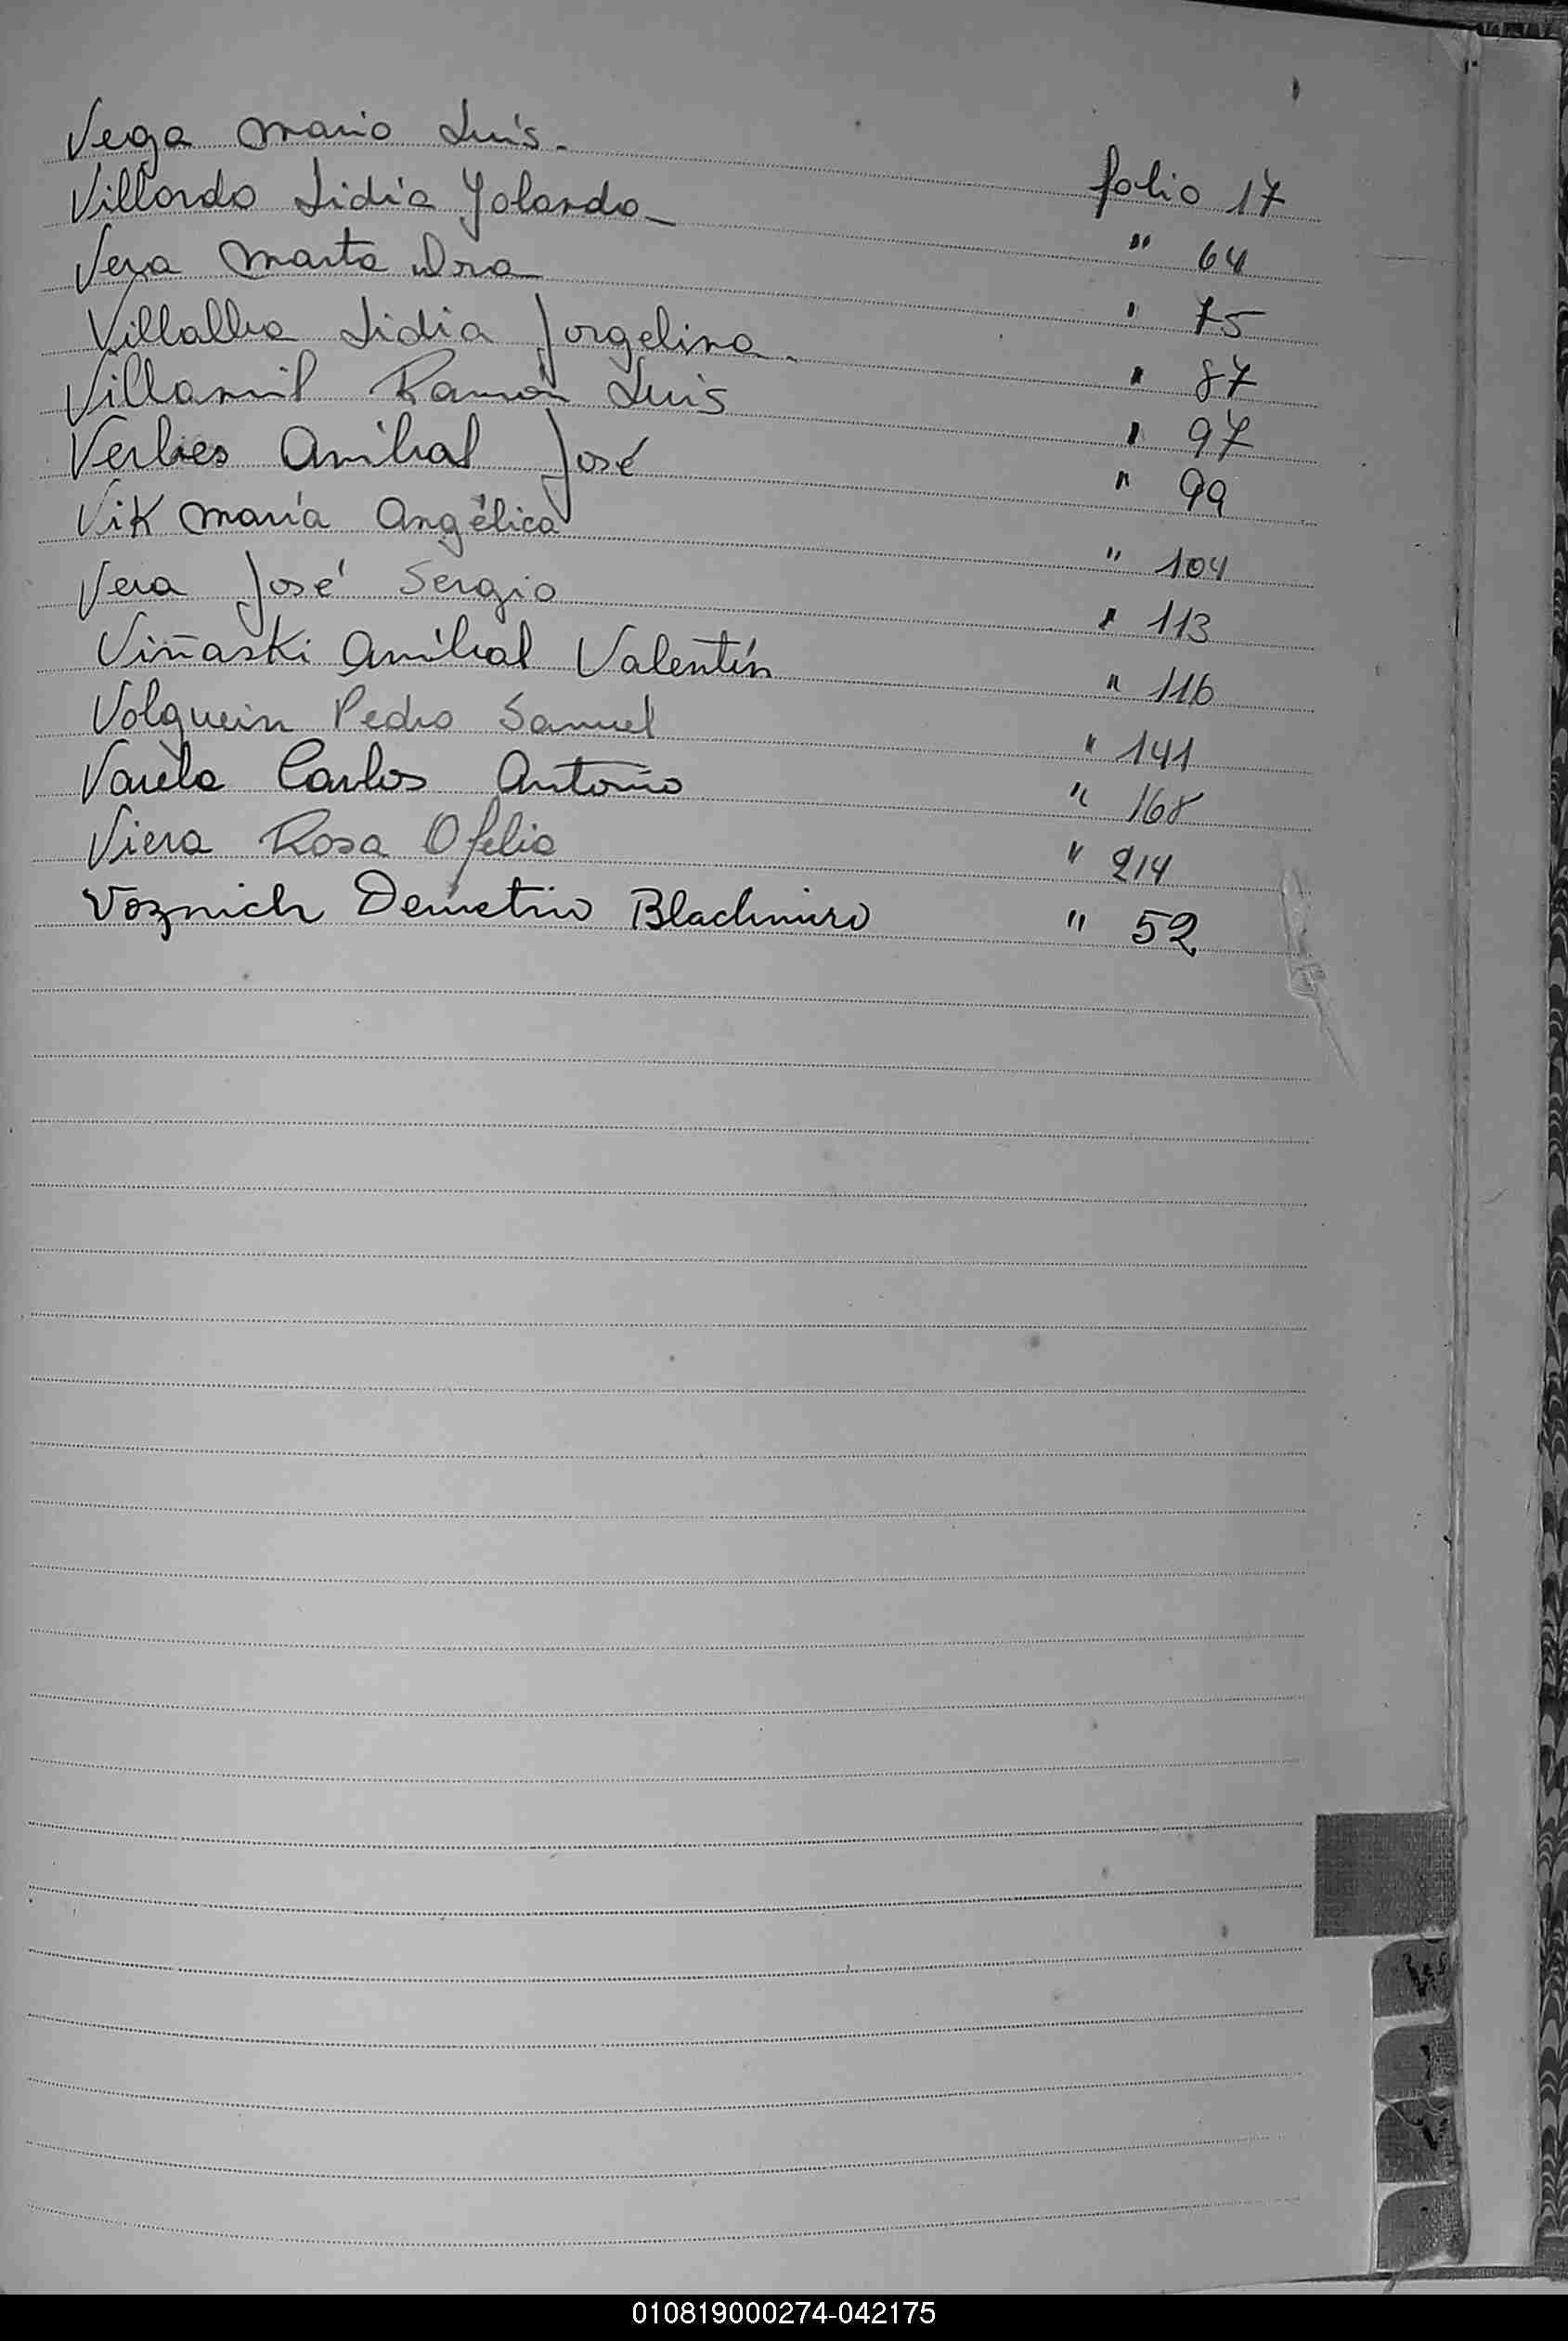 Vega Mario Luis. folio 17
Villordo Lidia Yolanda " 64
Vera Marta Dora " 75
Villalba Lidia Jorgelina. " 87
Villamil Ramón Luis " 97
Verbes Aníbal José " 99
Vik María Angélica " 104
Vera José Sergio " 113
Viñaski Aníbal Valentín " 116
Volguein Pedro Samuel " 141
Varela Carlos Antonio " 168
Viera Rosa Ofelia " 214
Voznich Demetrio Blachmiro " 52
010819000274-042175